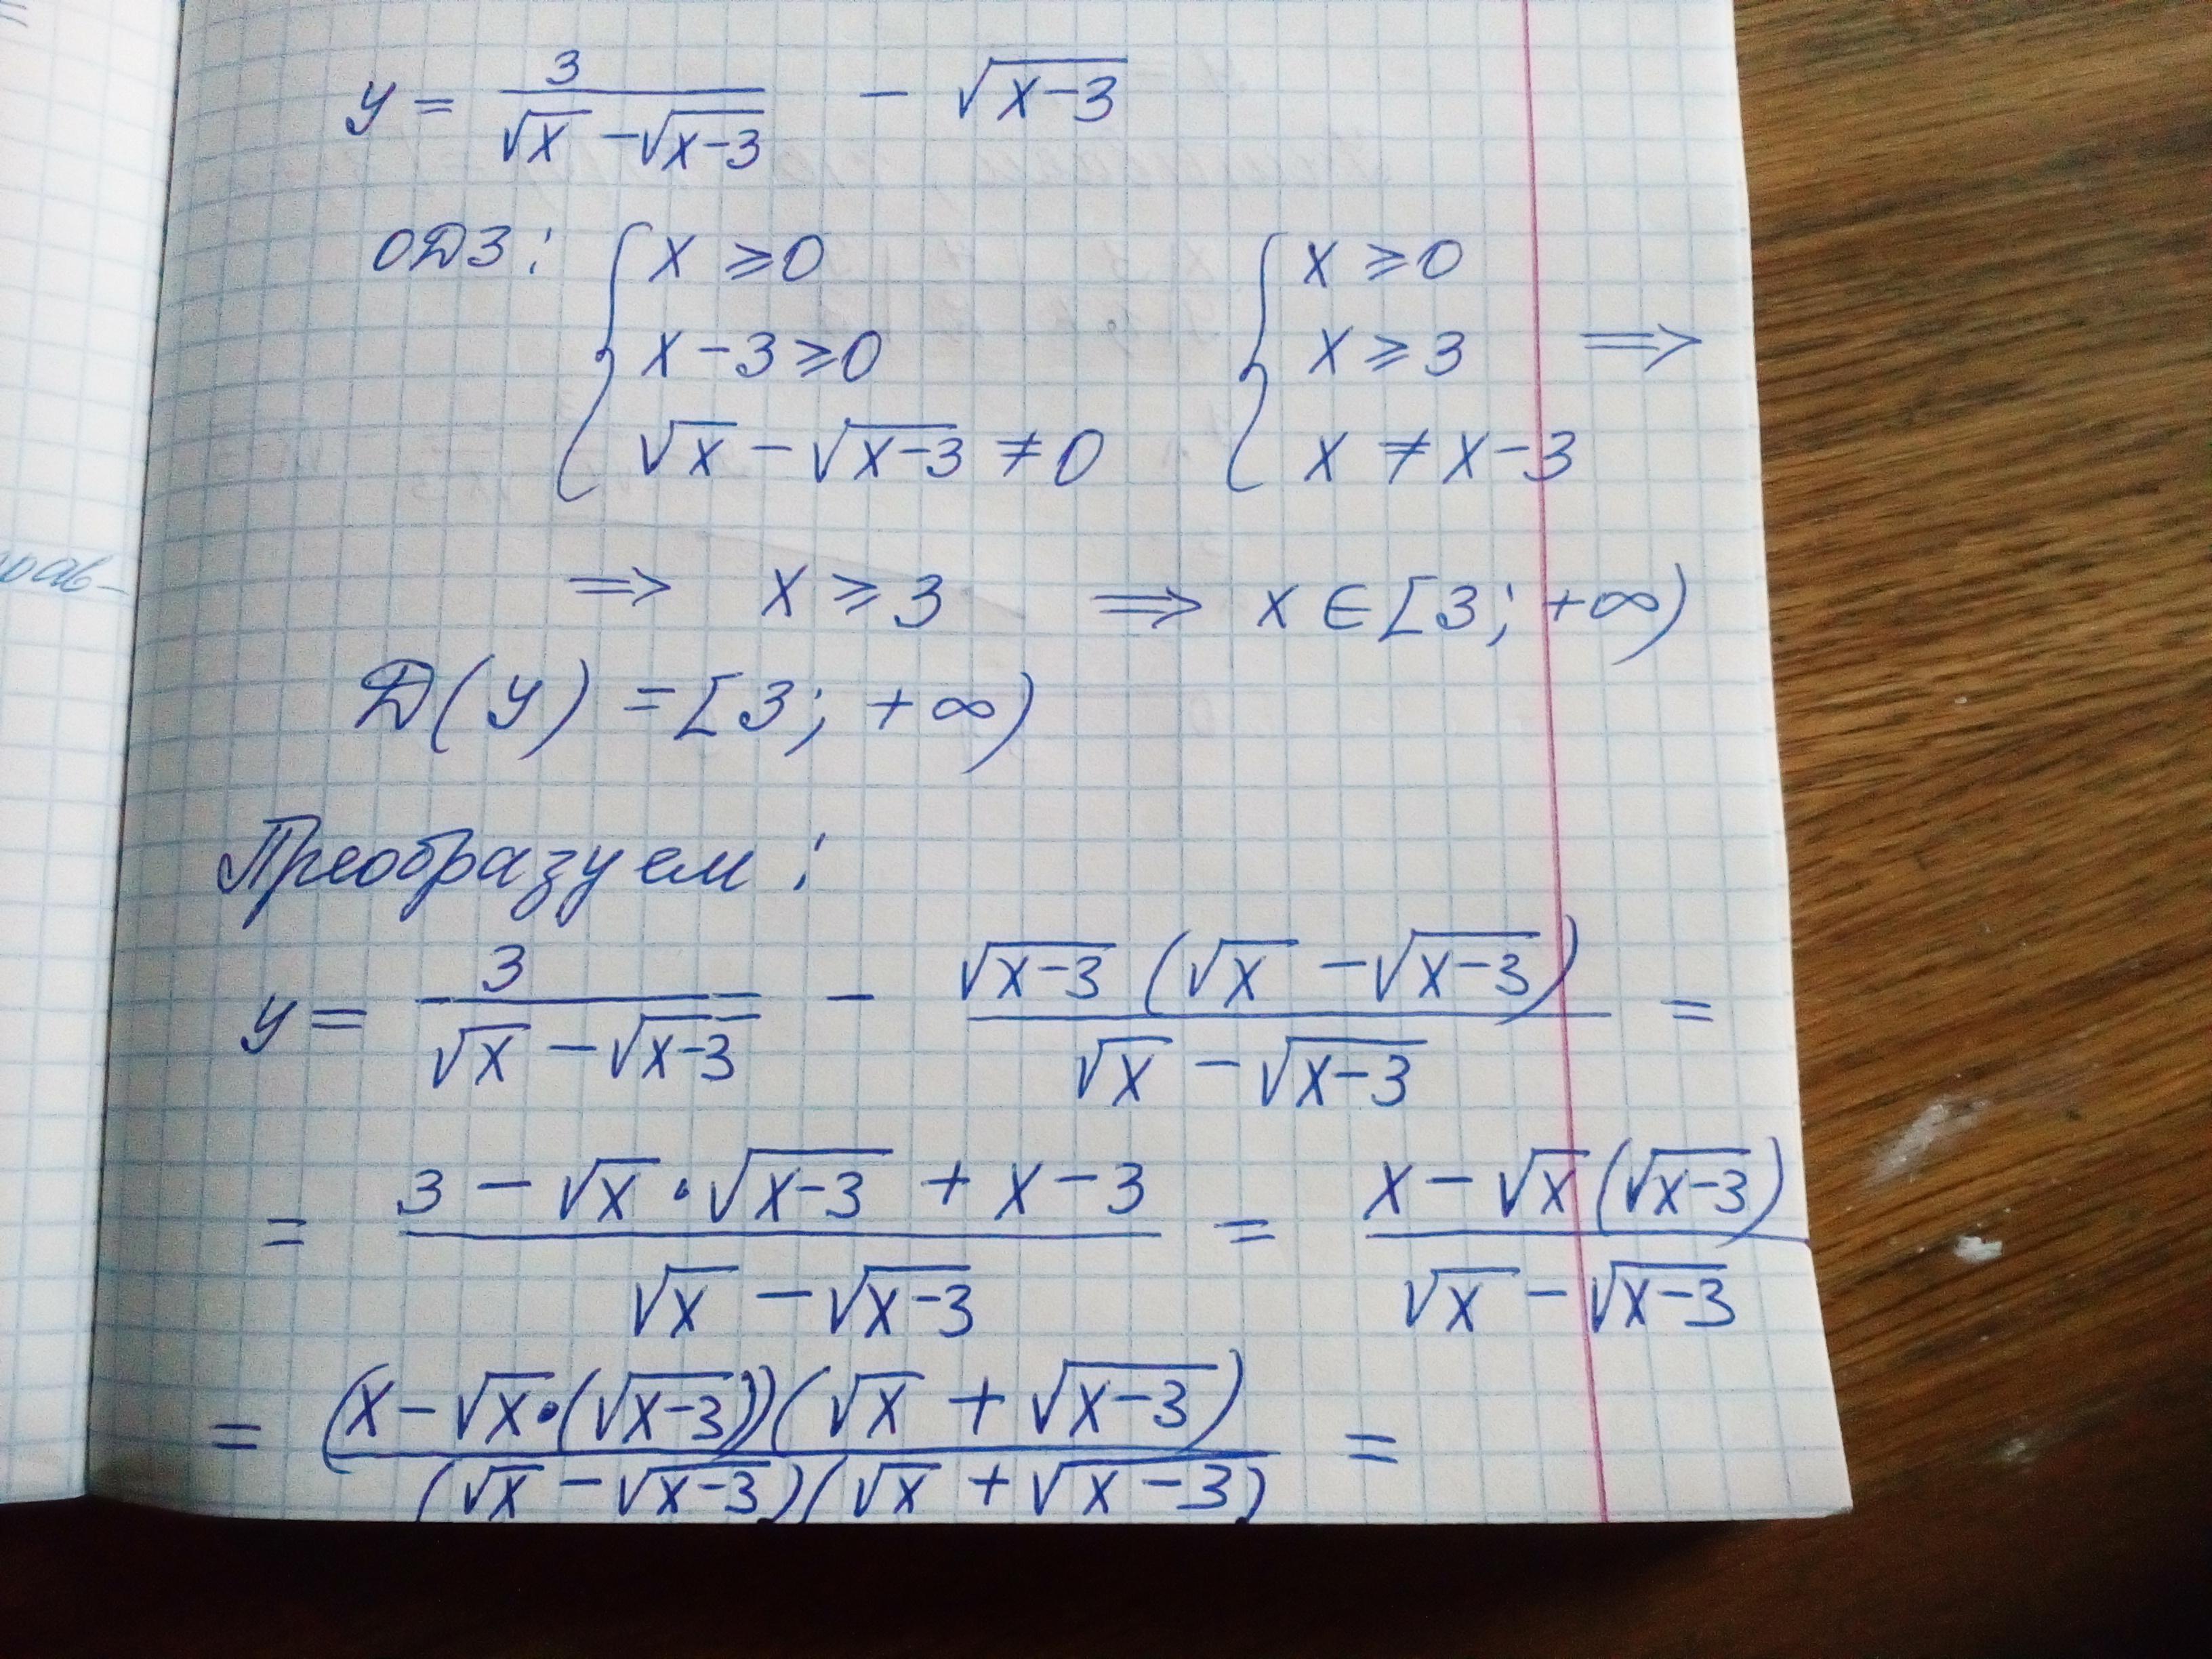 y = 3/(√x − √(x−3)) − √(x−3)
ОДЗ: { x ≥ 0 { x ≥ 0
x − 3 ≥ 0 x ≥ 3 ⟹
√x − √(x−3) ≠ 0 x ≠ x − 3
⟹ x ≥ 3 ⟹ x ∈ [3; +∞)
Д(y) = [3; +∞)
Преобразуем:
y = 3/(√x − √(x−3)) − √(x−3) (√x − √(x−3))/(√x − √(x−3)) =
= (3 − √x · √(x−3) + x − 3)/(√x − √(x−3)) = (x − √x (√(x−3)))/(√x − √(x−3))
= ((x − √x · (√(x−3)))(√x + √(x−3)))/((√x − √(x−3))(√x + √(x−3))) =